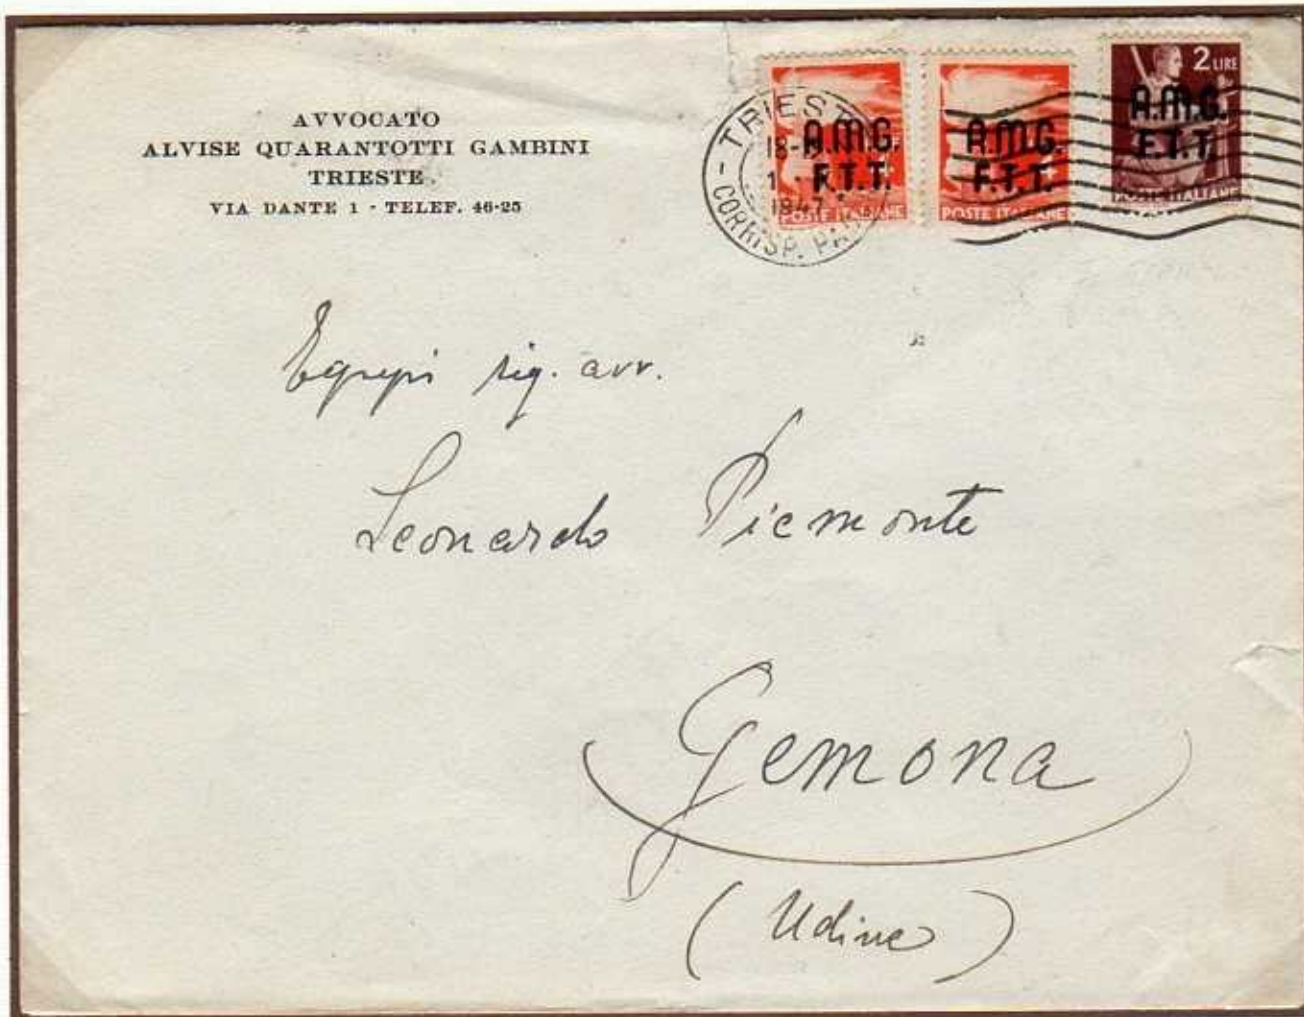 AVVOCATO
ALVISE QUARANTOTTI GAMBINI
TRIESTE
VIA DANTE 1 - TELEF. 46-25
TRIEST
18-1
1
1947
CORRISP. PA
A.M.G.
F.T.T.
POSTE ITALIANE
A.M.G.
F.T.T.
POSTE ITALIANE
2 LIRE
A.M.G.
F.T.T.
POSTE ITALIANE
sig. avv.
Leonardo Piemonte
Gemona
(Udine)